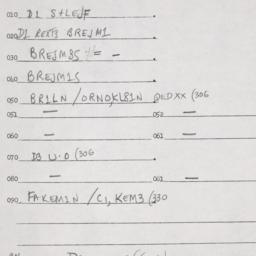 010 D1 S+LEJF
020 D1 REXT3 BREJM1
030 BREJM35 –
040 BREJM1S
050 BR1LN /ORNO,KL81N DEDXX (306
051 — 052 —
060 — 061 —
070 D3 W.O (306
080 — 061 —
090 FAKEM1N /C1, KEM3 (330